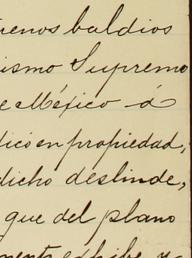 renos baldios
ismo Supremo
e México á
dico en propiedad,
dicho deslinde,
que del plano